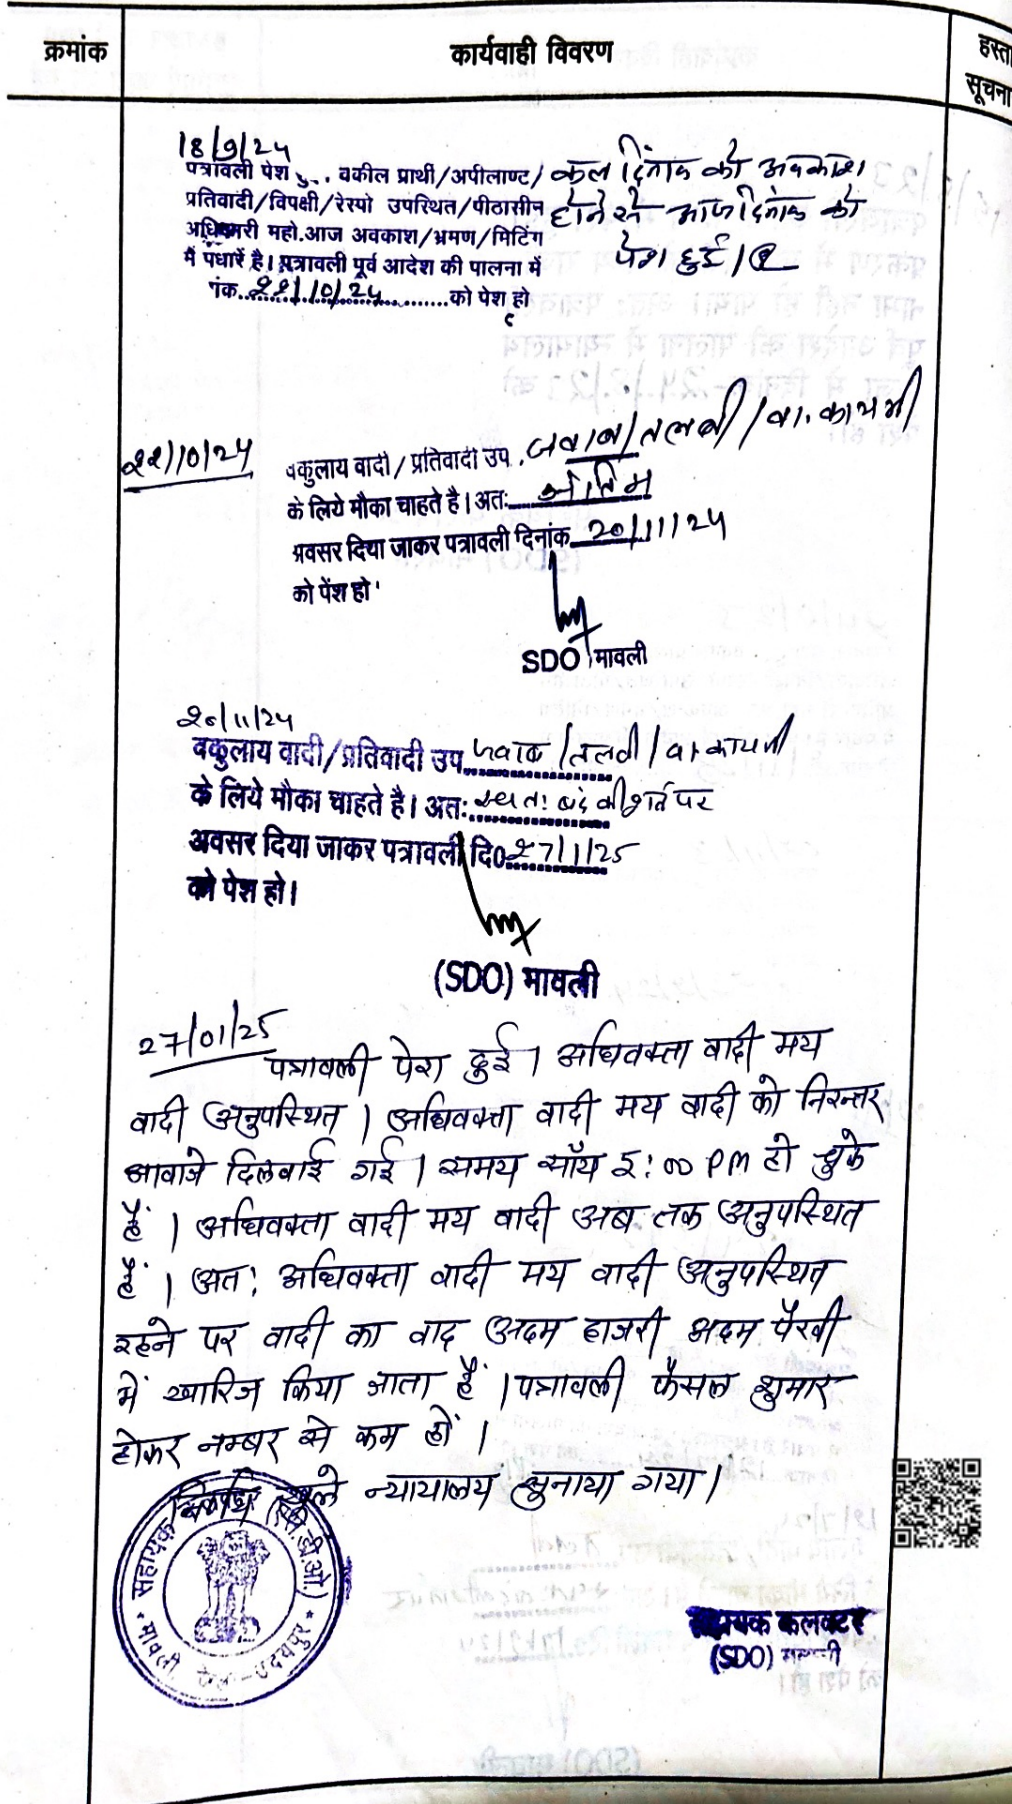 क्रमांक
कार्यवाही विवरण
हस्ता
सूचना
18/9/24
पत्रावली पेश वकील प्रार्थी/अपीलाण्ट/ कल दिनांक को अवकाश
प्रतिवादी/विपक्षी/रेस्पो उपस्थित/पीठासीन होने से आज दिनांक को
अधिकारी महो.आज अवकाश/भ्रमण/मिटिंग पेश हुई।
में पधारें है। पत्रावली पूर्व आदेश की पालना में
नंक 22/10/24 को पेश हो
22/10/24
वकुलाय वादी / प्रतिवादी उप. जवाब/तलबी/वा. कायमी
के लिये मौका चाहते है। अतः अंतिम
अवसर दिया जाकर पत्रावली दिनांक 20/11/24
को पेंश हो
SDO मावली
20/11/24
वकुलाय वादी/प्रतिवादी उप जवाब/तलबी/वा. कायमी
के लिये मौका चाहते है। अतः स्वतः बंद की शर्त पर
अवसर दिया जाकर पत्रावली दि0 27/1/25
को पेश हो।
(SDO) मावली
27/01/25
पत्रावली पेश हुई। अधिवक्ता वादी मय
वादी अनुपस्थित। अधिवक्ता वादी मय वादी को निरन्तर
आवाजे दिलवाई गई। समय साँय 5:00 PM हो चुके
हैं। अधिवक्ता वादी मय वादी अब तक अनुपस्थित
हैं। अतः अधिवक्ता वादी मय वादी अनुपस्थित
रहने पर वादी का वाद अदम हाजरी अदम पैरवी
में खारिज किया जाता हैं। पत्रावली फैसल शुमार
होकर नम्बर से कम हों।
निर्णय खुले न्यायालय सुनाया गया।
सहायक (एस.डी.ओ.)
मावली, जिला-उदयपुर
सहायक कलक्टर
(SDO) मावली